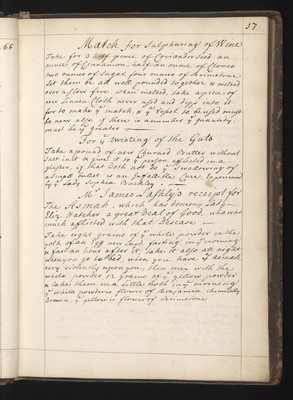 57
66
Match for Sulphuring of Wine
Take for 3 pence of Coriander seed an
ounce of Cinnamon, half an ounce of Cloves
two ounces of Sugar, four ounces of Brimstone
Let them be all well pounded together & melted
over a slow fire, when melted, take a piece of
new Linnen Cloth never used and dipp into it
for to make y match, & y Vessel to be used must
be new also if there is a number y quantity
must be y greater
For y twisting of the Guts
Take a pound of new Churned Butter without
salt in it & give it to y person afflicted in a
glister, if that Doth not do y swallowing of
a bullet is an Infallible Cure. Experienced
by y Lady Sophia Buckley
Mr James Lashly's receipt for
The Asmah, which has done my Lady
Eliz Hatcher a great Deal of good, who was
much afflicted with that Disease
Take eight grains of y white powder in the
yolk of an Egg new laid fasting in y morning
& fast an hour after it, take it also at night
when you go to bed, when you have y Asmah
very violently upon you, then mix with the
white powder 12 grains of y yellow powder
& take them in a little broth in y morning
y white powder is flower of Benjamin chimically
Drawn y yellow is flower of Brimstone